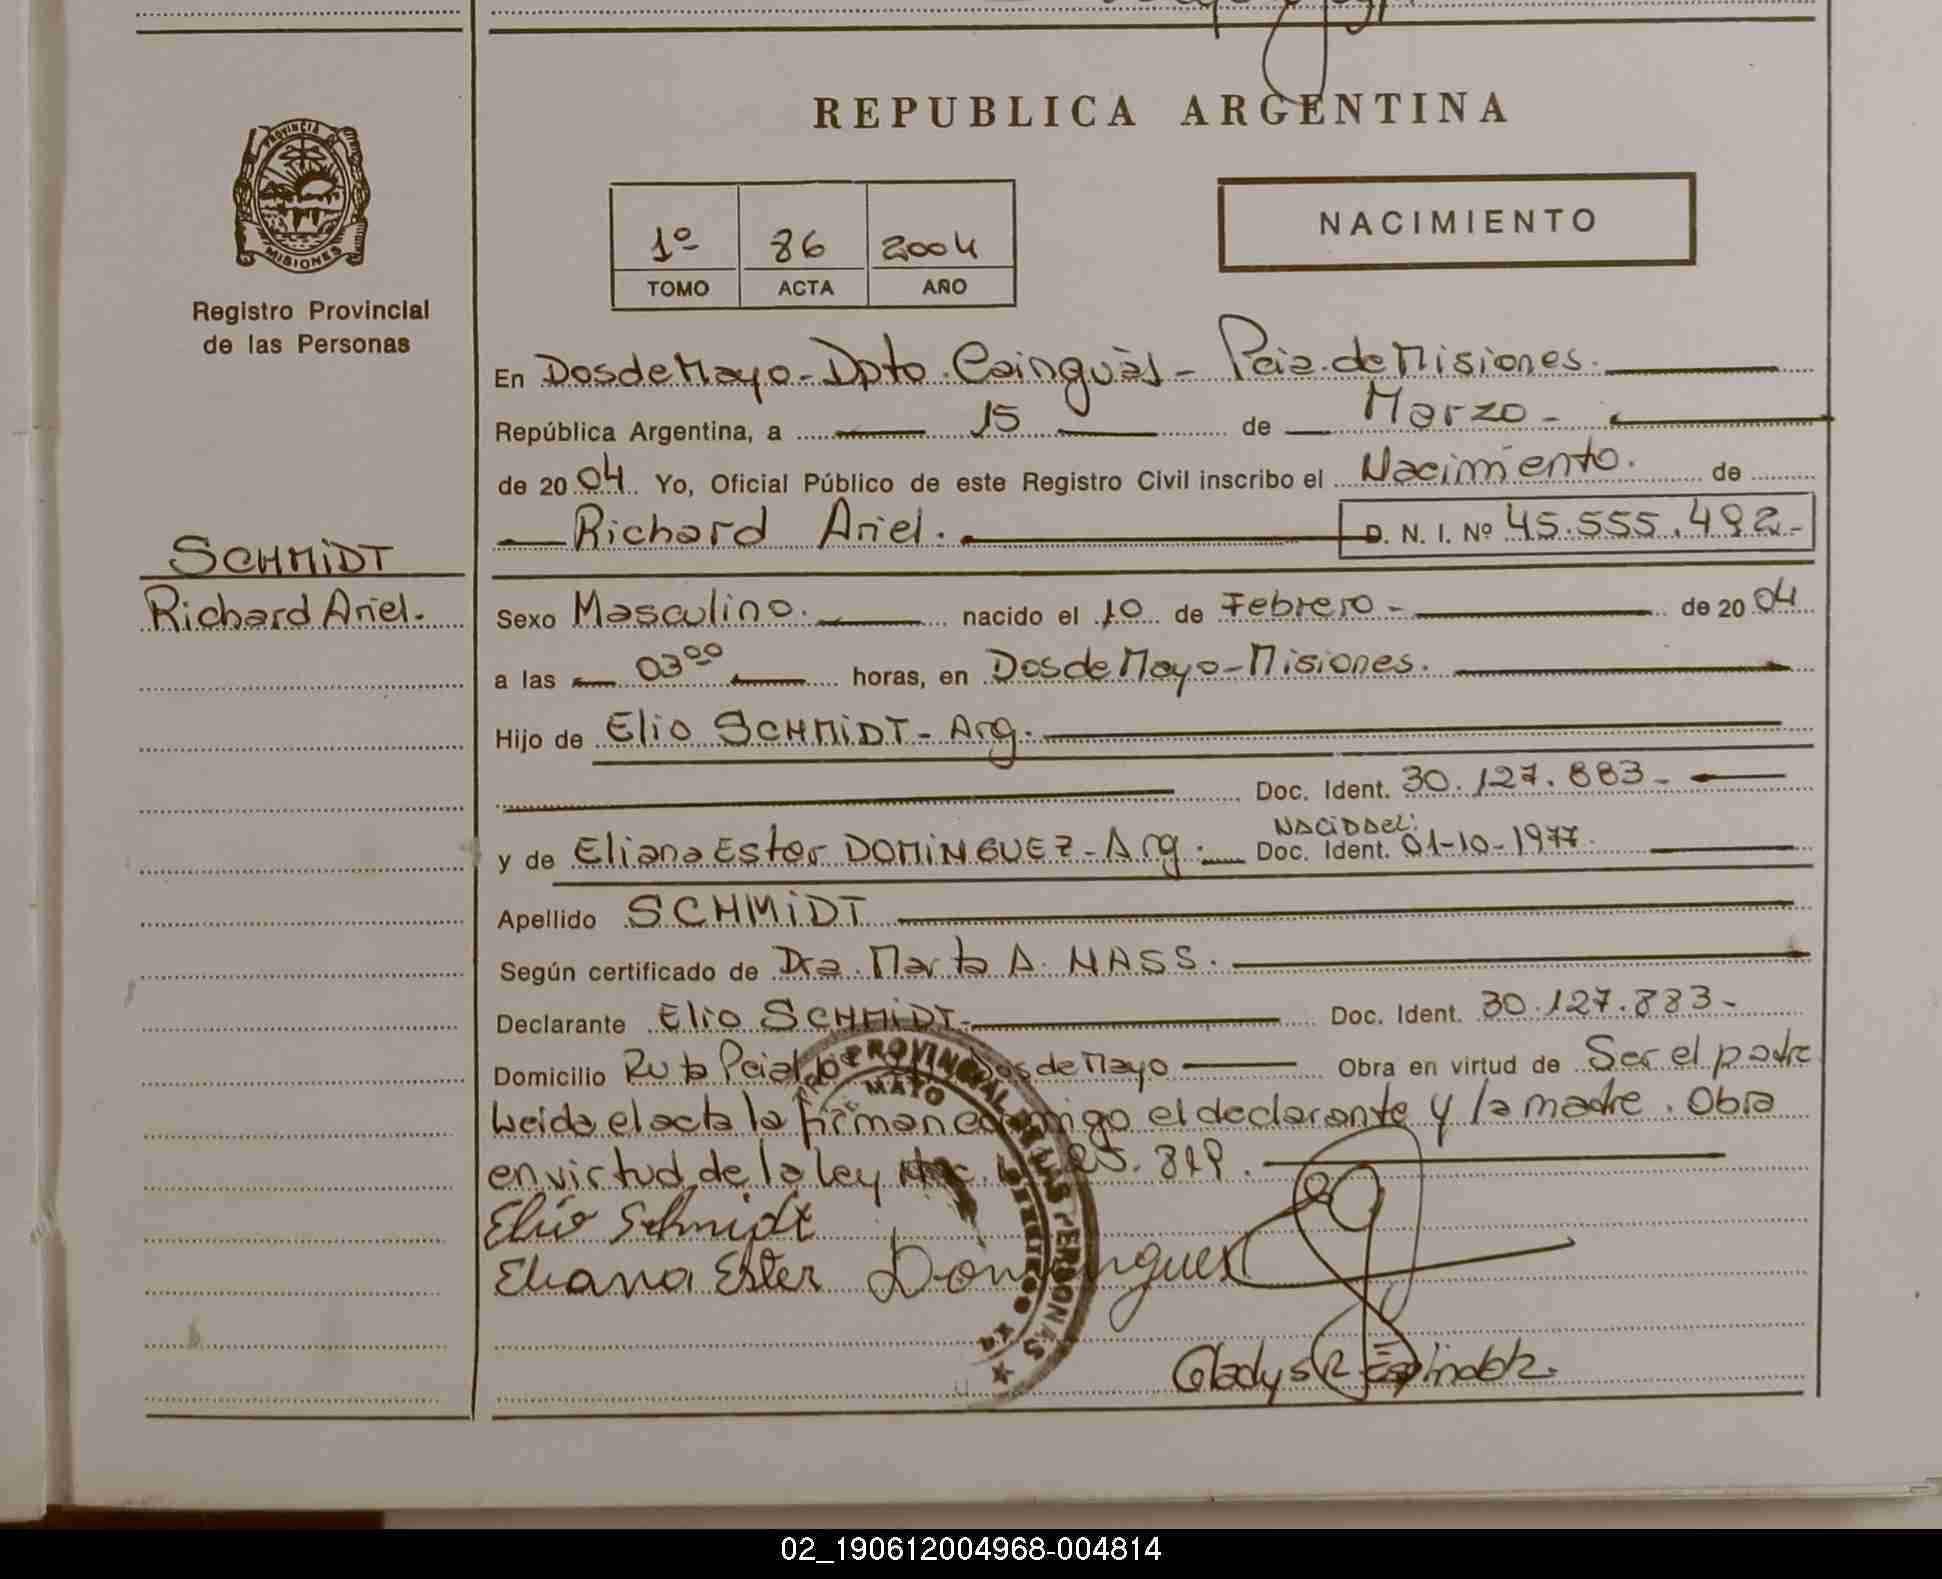 REPUBLICA ARGENTINA
PROVINCIA DE
MISIONES
Registro Provincial
de las Personas
1º 86 2004
TOMO ACTA AÑO
NACIMIENTO
En Dos de Mayo - Dpto. Cainguàs - Pcia. de Misiones.
República Argentina, a 15 de Marzo -
de 2004 Yo, Oficial Público de este Registro Civil inscribo el Nacimiento. de
Richard Ariel. D. N. I. Nº 45.555.492-
SCHMIDT
Richard Ariel.
Sexo Masculino. nacido el 10 de Febrero - de 2004
a las 03⁰⁰ horas, en Dos de Mayo - Misiones.
Hijo de Elio SCHMIDT - Arg.
Doc. Ident. 30.127.883 -
NACIDA el:
y de Eliana Ester DOMINGUEZ - Arg. Doc. Ident. 01-10-1977.
Apellido SCHMIDT
Según certificado de Dra. Marta A. NASS.
Declarante Elio SCHMIDT. Doc. Ident. 30.127.883 -
Domicilio Ruta Pcial Dos de Mayo Obra en virtud de Ser el padre
Leida el acta la firman conmigo el declarante y la madre. Obra
en virtud de la ley 25.819.
Elio Schmidt
Eliana Ester Dominguez
PROVINCIAL DE LAS PERSONAS
MAYO
Gladys R. Espindola.
02_190612004968-004814